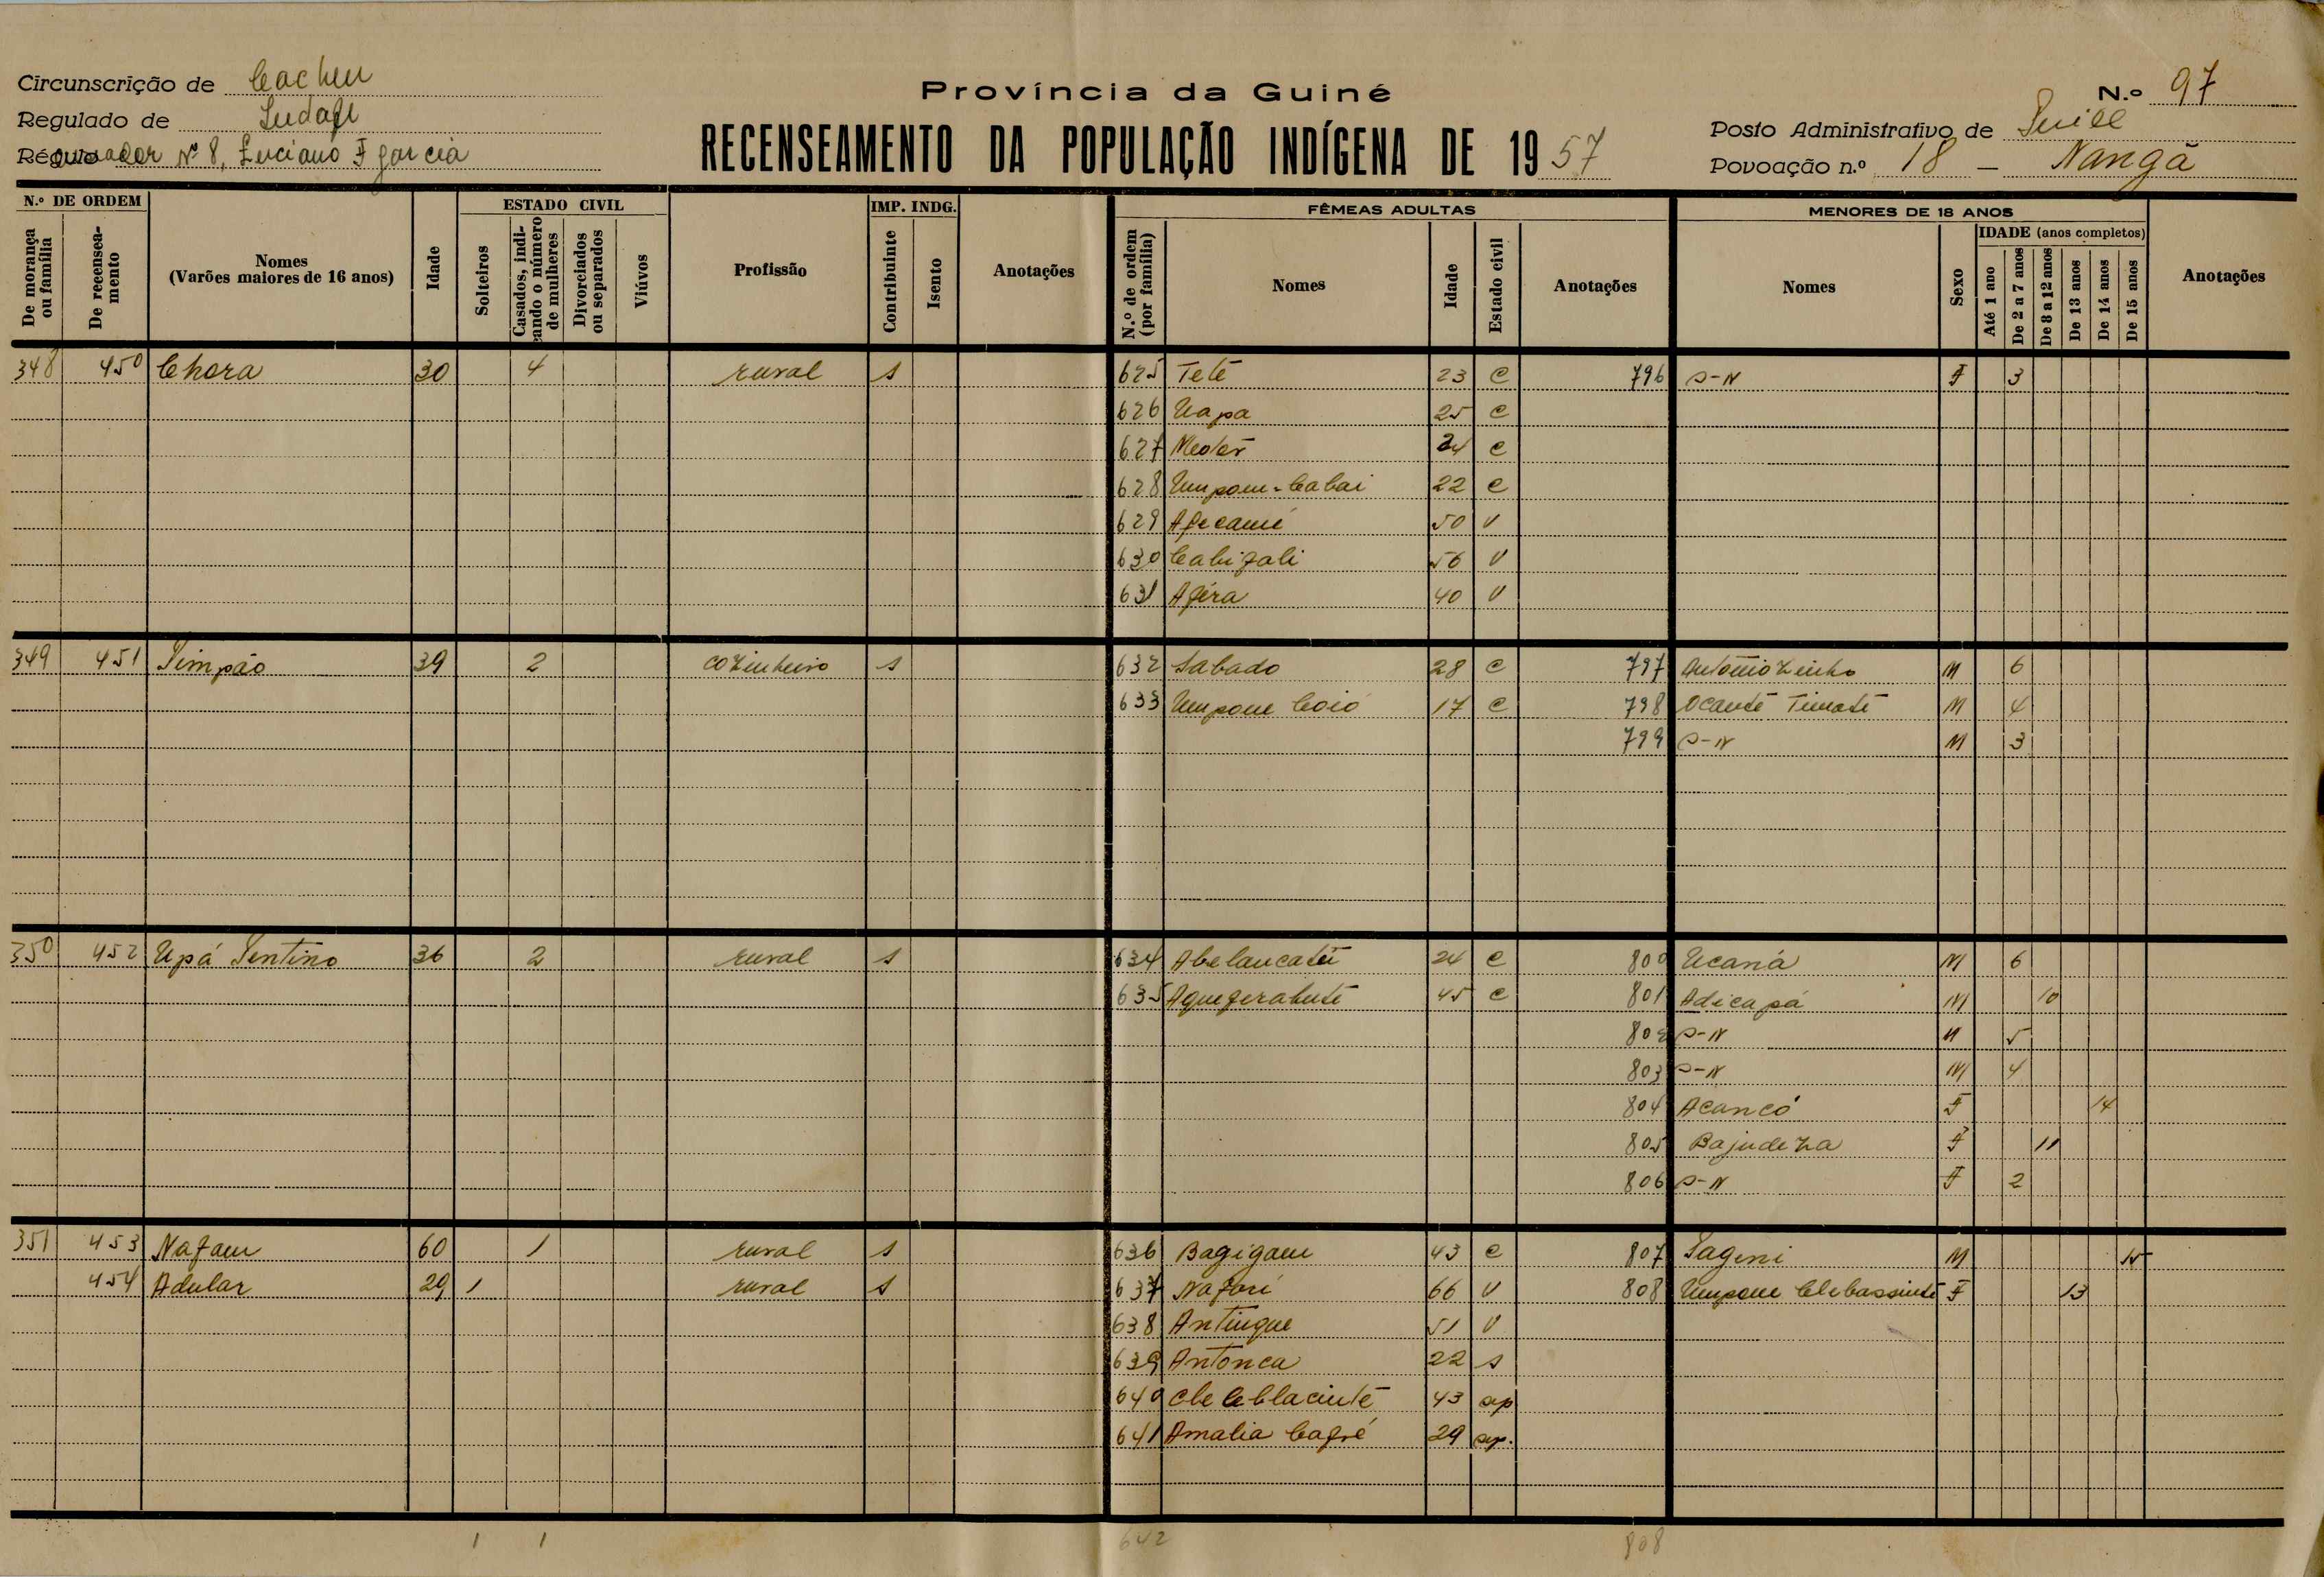 Circunscrição de Cacheu
Regulado de
Régulo Nº 8, Luciano F garcia
Província da Guiné
RECENSEAMENTO DA POPULAÇÃO INDÍGENA DE 1957
N.º 97
Posto Administrativo de
Povoação n.º 18 - Nangã
N.º DE ORDEM
De morança ou família
De recenseamento
Nomes
(Varões maiores de 16 anos)
Idade
ESTADO CIVIL
Solteiros
Casados, indicando o número de mulheres
Divorciados ou separados
Viúvos
Profissão
IMP. INDG.
Contribuinte
Isento
Anotações
FÊMEAS ADULTAS
N.º de ordem (por família)
Nomes
Idade
Estado civil
Anotações
MENORES DE 18 ANOS
Nomes
Sexo
IDADE (anos completos)
Até 1 ano
De 2 a 7 anos
De 8 a 12 anos
De 13 anos
De 14 anos
De 15 anos
Anotações
348 450 Chora 30 4 rural s 625 Teté 23 C 796 S-N F 3
626 Uapa 25 C
627 24 C
628 22 C
629 50 V
630 56 V
631 40 V
349 451 39 2 cozinheiro s 632 Sabado 28 C 797 Antoniozinho M 6
633 Umpone Coió 17 C 798 Ocanté Timaté M 4
799 S-N M 3
350 452 Upá 36 2 rural s 634 24 C 800 Ucaná M 6
635 45 C 801 Adicapá M 10
802 S-N M 5
803 S-N M 4
804 Acancó F 14
805 Bajudeza F 11
806 S-N F 2
351 453 60 1 rural s 636 43 C 807 M 15
454 Adular 29 1 rural s 637 66 V 808 Umpone F 13
638 51 V
639 Antonca 22 s
640 43 sep
641 Amalia Cafré 29 sep.
1 1 642 808